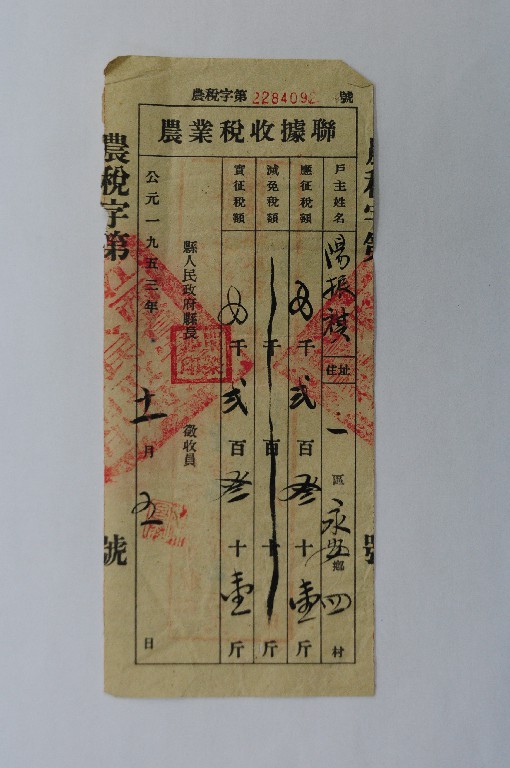 農稅字第2284092號
聯據收稅業農
戶主姓名 陽振祺 住址 一區永安鄉四村
應征稅額 千弍百叁十壹斤
減免稅額 千百十斤
實征稅額 千弍百叁十壹斤
縣人民政府縣長 徵收員
公元一九五三年十一月 日
農稅字第 號